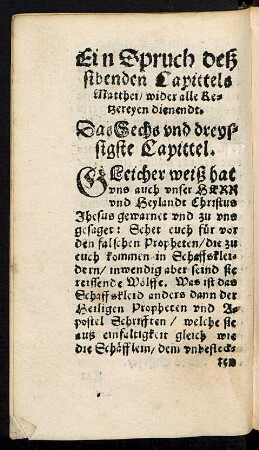 Ein Spruch deß
sibenden Capittels
Matthei / wider alle Ke-
tzereyen dienendt.
Das Sechs vnd dreyß-
sigste Capittel.
GLeicher weiß hat
vns auch vnser HERR
vnd Heylandt Christus
Jhesus gewarnet vnd zu vns
gesaget: Sehet euch für vor
den falschen Propheten / die zu
euch kommen in Schaffsklei-
dern / inwendig aber seind sie
reissende Wölffe. Was ist das
Schaffskleid anders dann der
Heiligen Propheten vnd A-
postel Schrifften / welche sie
auß einfaltigkeit gleich wie
die Schäfflein / dem vnbefleck-
ten